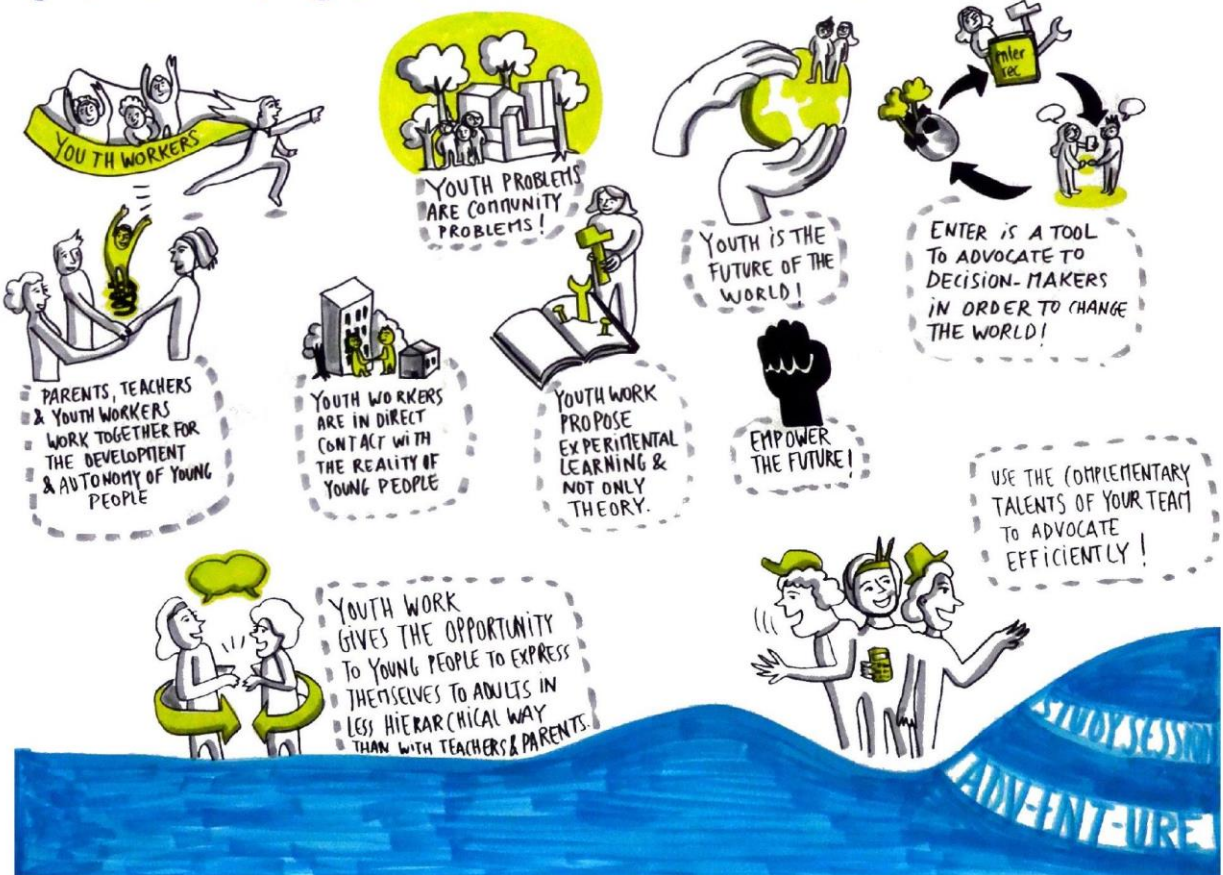 YOUTH WORKERS
YOUTH PROBLEMS
ARE COMMUNITY
PROBLEMS!
YOUTH IS THE
FUTURE OF THE
WORLD!
enter
rec
ENTER iS A TOOL
TO ADVOCATE TO
DECISION-MAKERS
iN ORDER TO CHANGE
THE WORLD!
PARENTS, TEACHERS
& YOUTH WORKERS
WORK TOGETHER FOR
THE DEVELOPMENT
& AUTONOMY OF YOUNG
PEOPLE
YOUTH WORKERS
ARE IN DIRECT
CONTACT WITH
THE REALITY OF
YOUNG PEOPLE
YOUTH WORK
PROPOSE
EXPERIMENTAL
LEARNING &
NOT ONLY
THEORY.
EMPOWER
THE FUTURE!
USE THE COMPLEMENTARY
TALENTS OF YOUR TEAM
TO ADVOCATE
EFFICIENTLY!
YOUTH WORK
GIVES THE OPPORTUNITY
TO YOUNG PEOPLE TO EXPRESS
THEMSELVES TO ADULTS IN
LESS HiERARCHICAL WAY
THAN WITH TEACHERS & PARENTS.
STUDY SESSION
ADV-ENT-URE